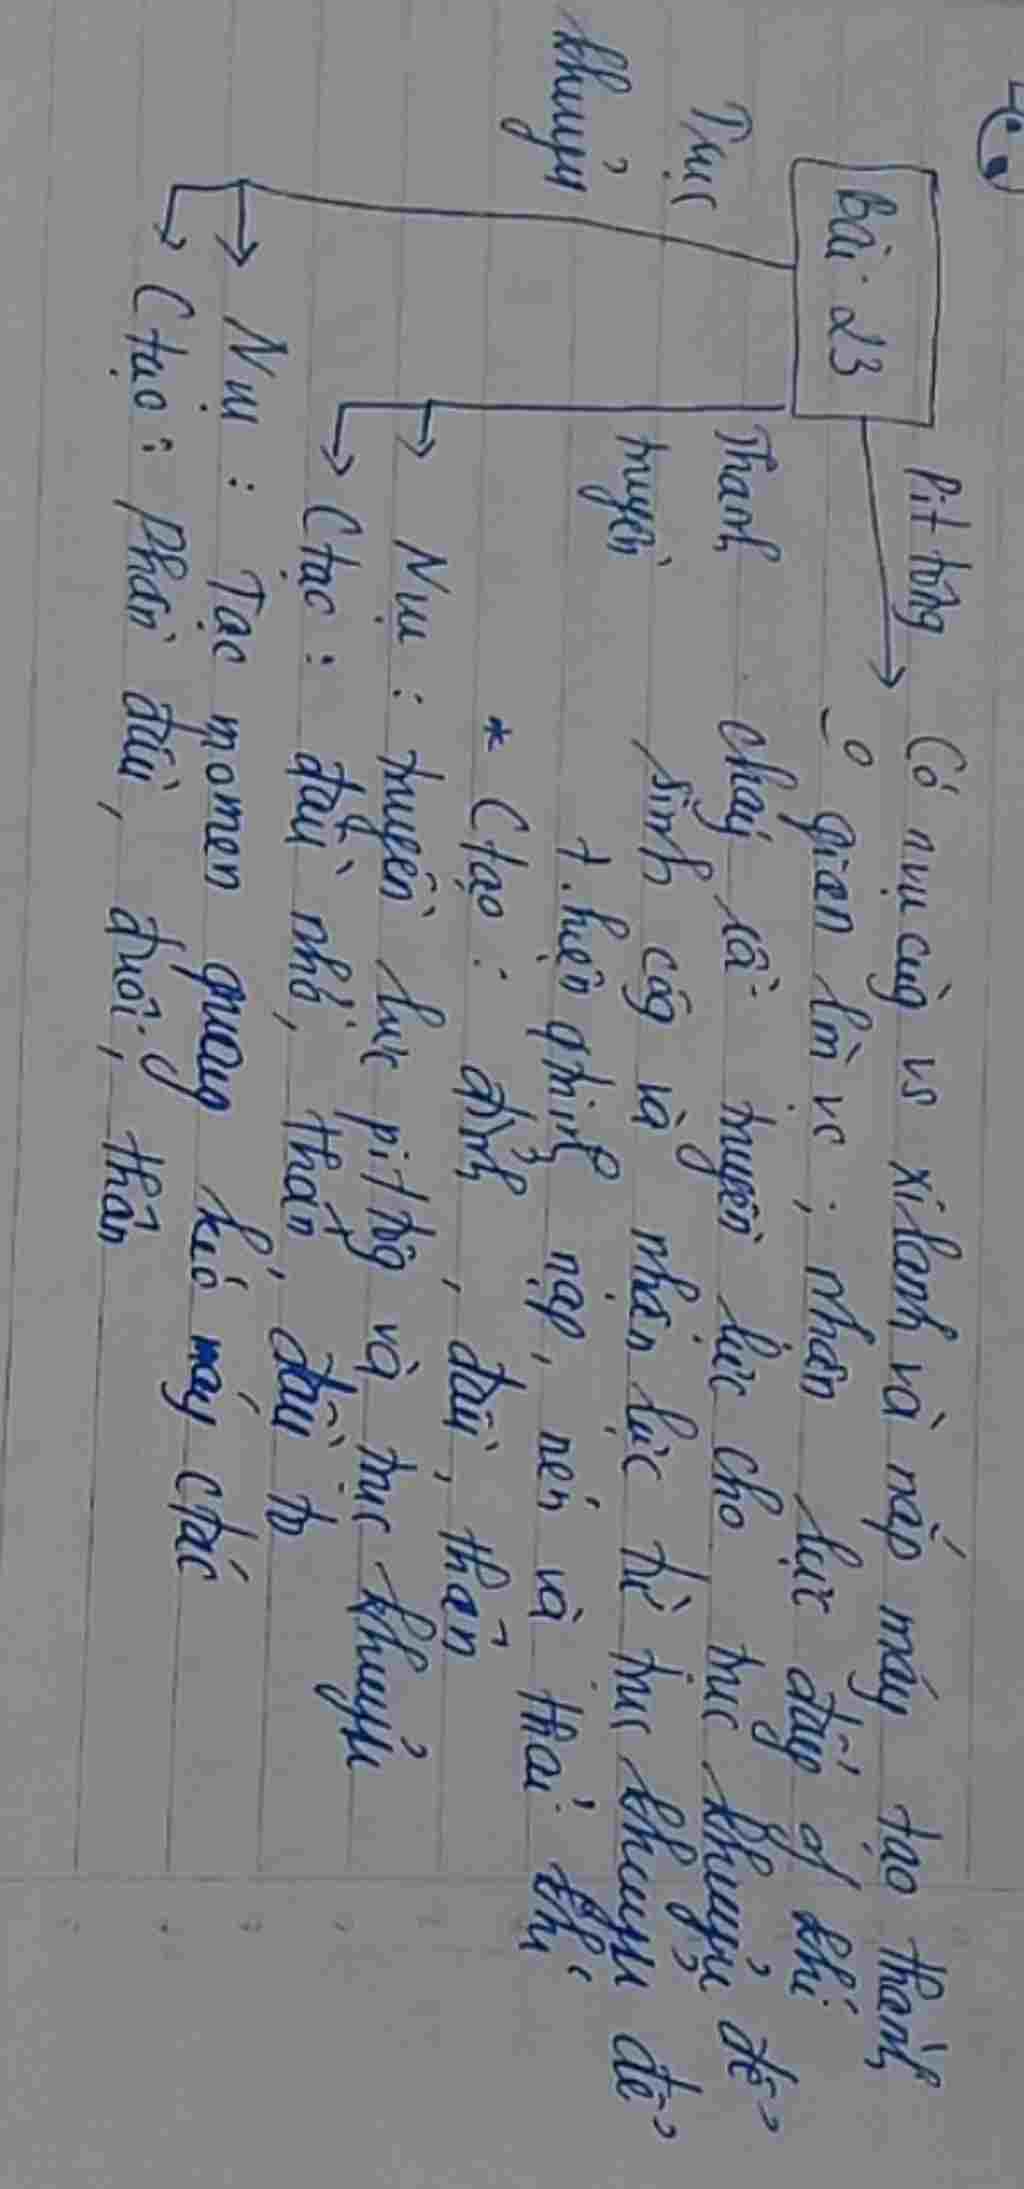 Bài 23
Pit tông
Có nvụ cùg vs xilanh và nắp máy tạo thành
gian làm vc ; nhận lực đẩy of khí
cháy rồi truyền lực cho trục khuỷu để
sinh côg và nhận lực từ trục khuỷu để
t.hiện qtrình nạp, nén và thải khí
* Ctạo : đỉnh, đầu, thân
Thanh
truyền
Nvụ : truyền lực pit tôg và trục khuỷu
Ctạo : đầu nhỏ, thân, đầu to
Trục
khuỷu
Nvụ : Tạo momen quay kéo máy ctác
Ctạo : Phần đầu, đuôi, thân